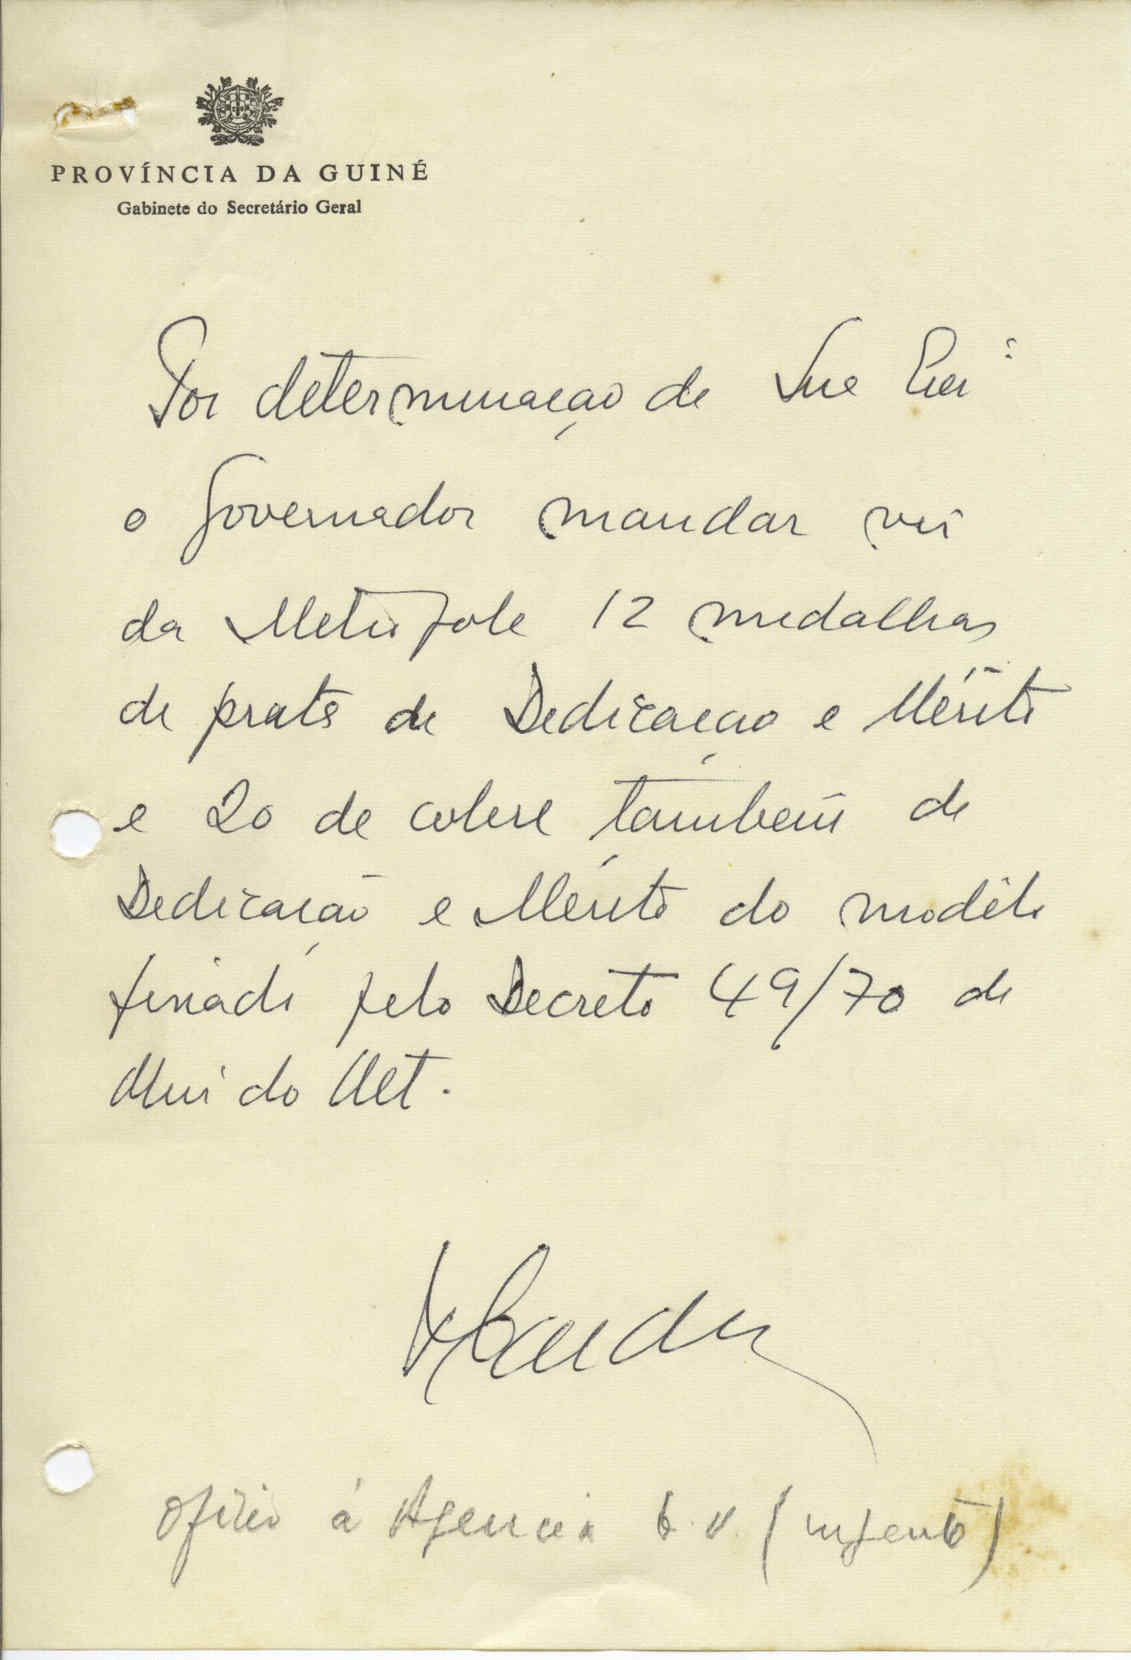 PROVÍNCIA DA GUINÉ
Gabinete do Secretário Geral
Por determinação de Sua Exa
o Governador mandar vir
da Metrópole 12 medalhas
de prata de Dedicação e Mérito
e 20 de cobre também de
Dedicação e Mérito do modêlo
fixado pelo Decreto 49/70 de
Min do Ult.
Ofício à Agencia (urgente)